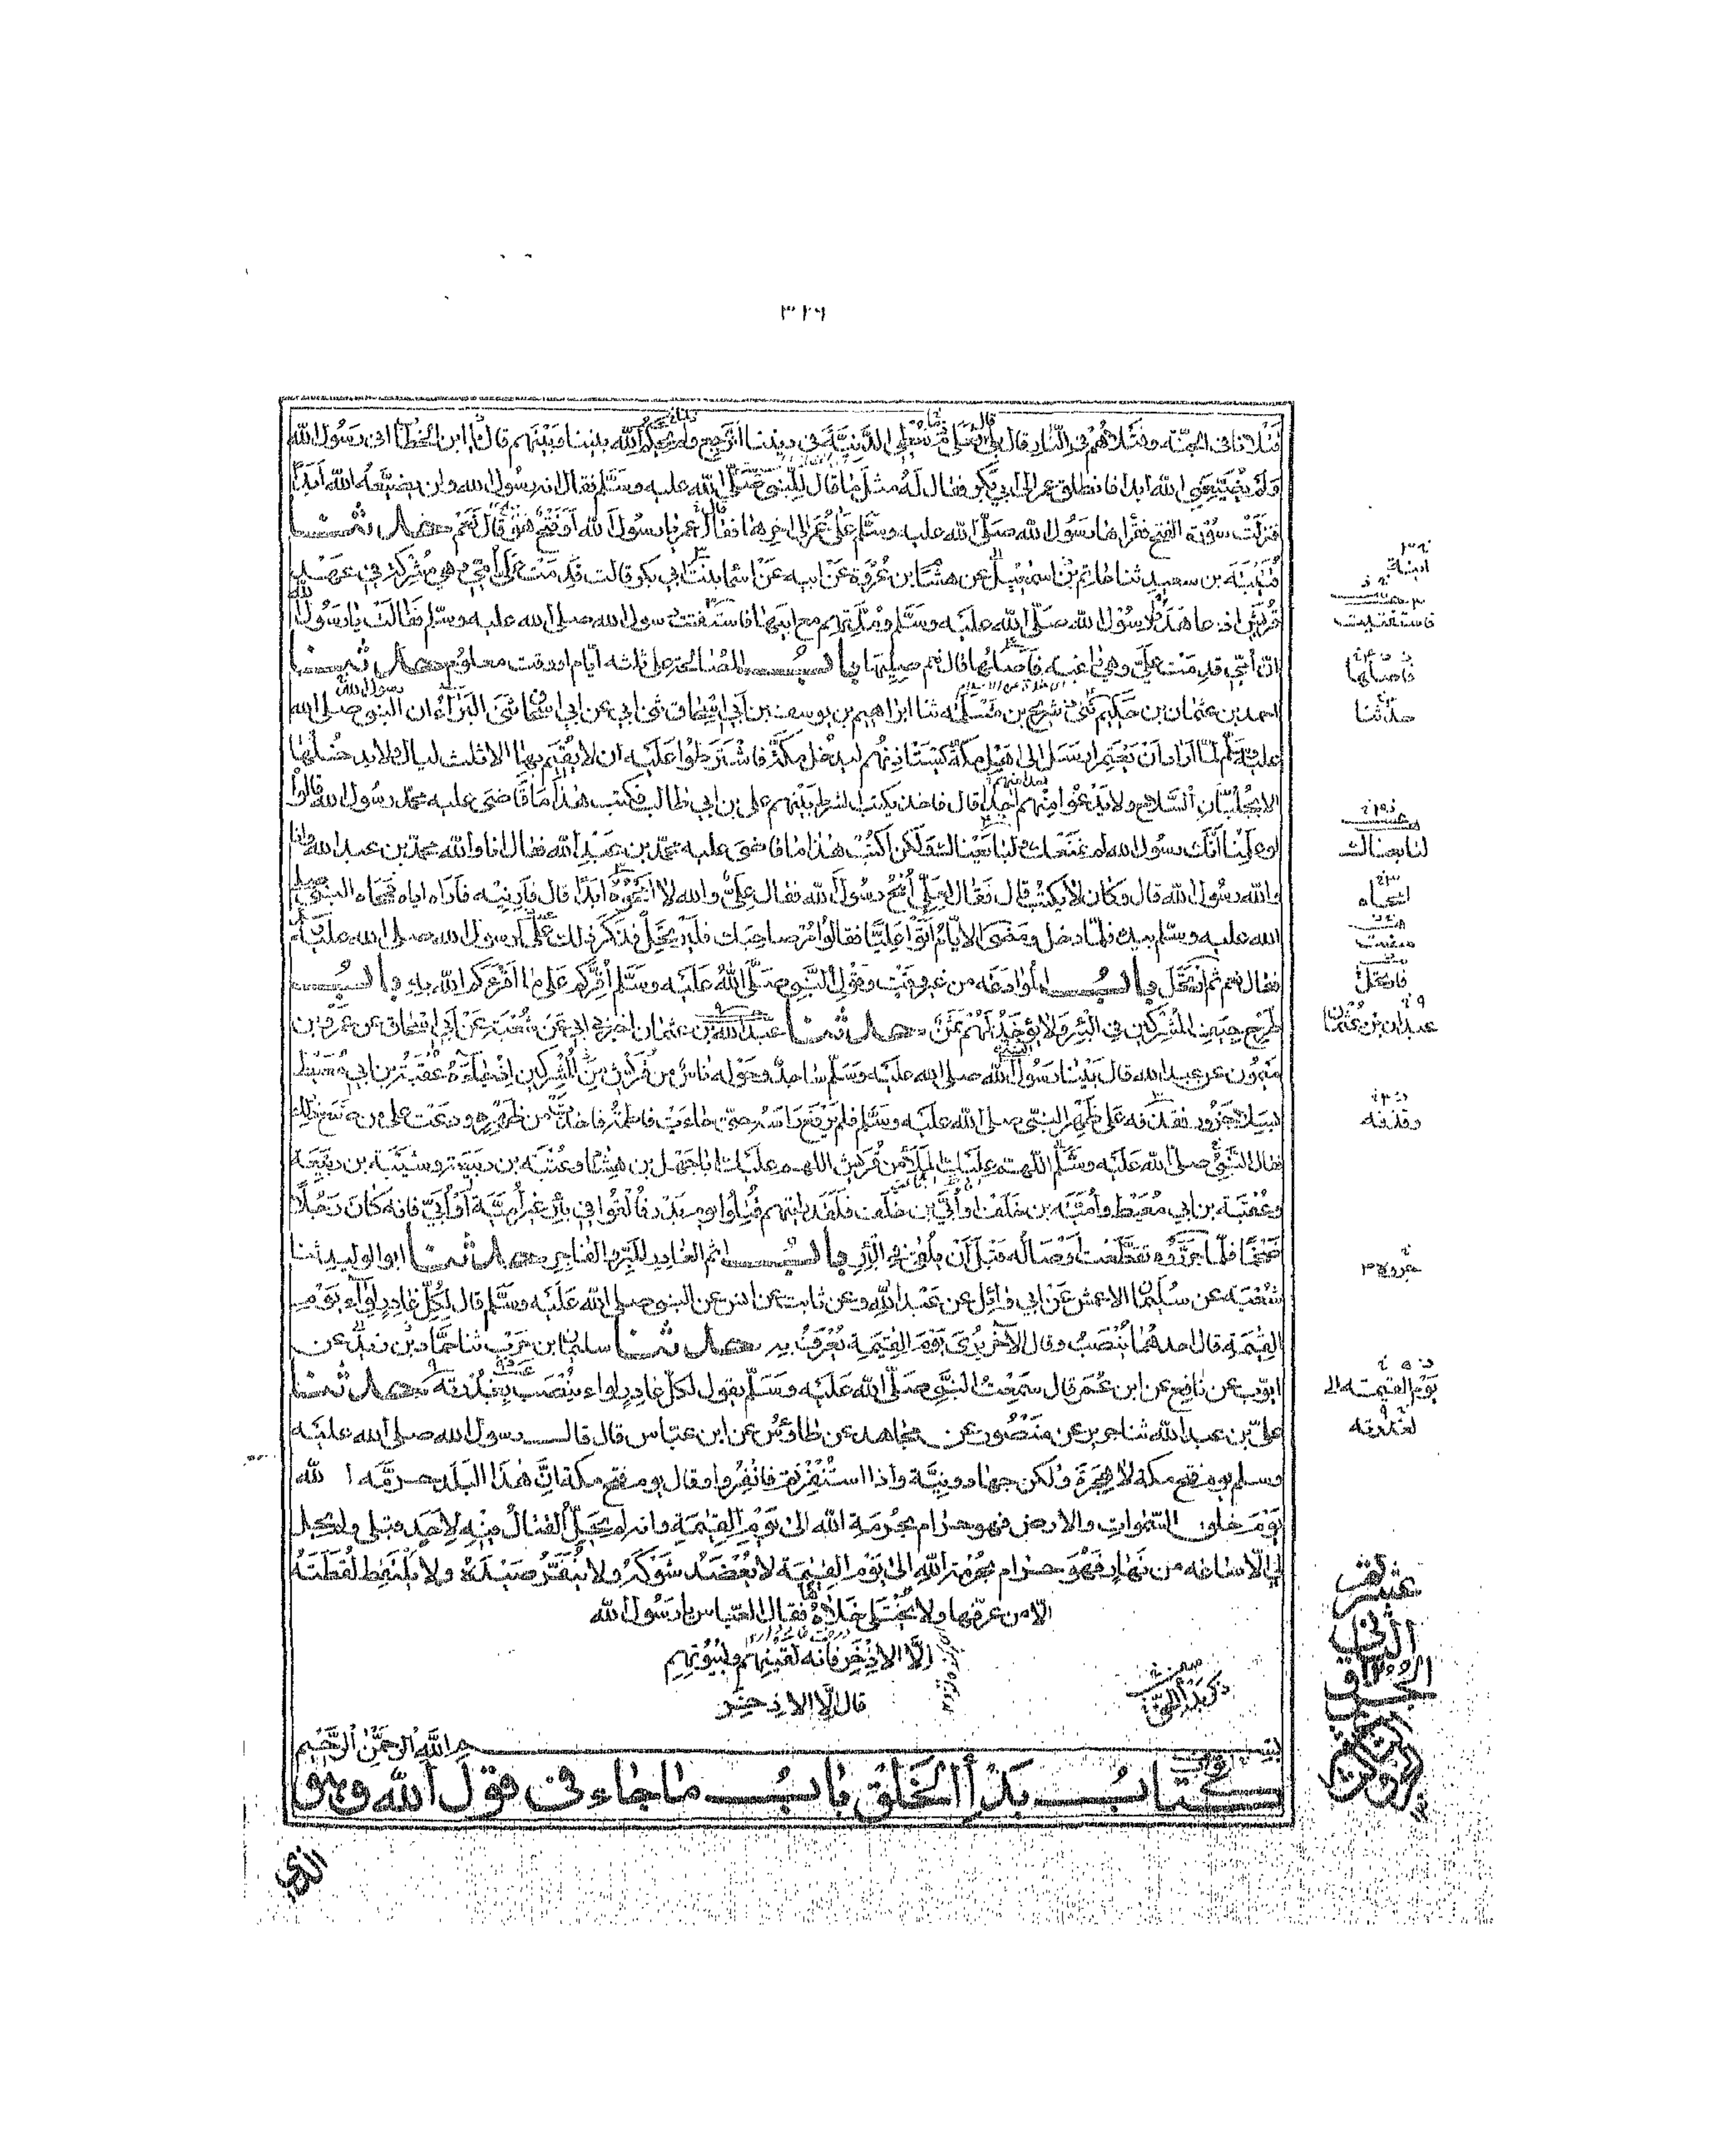 ٣٢٦
قتلانا فى الجنة وقتلاهم فى النار قال بلى قال فعلى ما نعطى الدنية فى ديننا انرجع ولم يحكم الله بيننا وبينهم قال يا ابن الخطاب انى رسول الله
ولن يضيعنى الله ابدا فانطلق عمر الى ابى بكر فقال له مثل ما قال للنبى صلى الله عليه وسلم فقال انه رسول الله ولن يضيعه الله ابدا
فنزلت سورة الفتح فقرأها رسول الله صلى الله عليه وسلم على عمر الى اخرها فقال عمر يا رسول الله أوفتح هو قال نعم حدثنا
قتيبة بن سعيد ثنا حاتم بن اسمعيل عن هشام بن عروة عن ابيه عن اسما بنت ابى بكر قالت قدمت على أمى وهى مشركة فى عهد
قريش اذ عاهدوا رسول الله صلى الله عليه وسلم ومدتهم مع ابيها فاستفتت رسول الله صلى الله عليه وسلم فقالت يا رسول الله
ان أمى قدمت على وهى راغبة فأصلها قال نعم صليها باب المصالحة على ثلاثة أيام او وقت معلوم حدثنا
احمد بن عثمان بن حكيم ثنى شريح بن مسلمة ثنا ابراهيم بن يوسف بن ابى اسحاق ثنى ابى عن ابى اسحاق ثنى البراء ان النبى صلى الله
عليه وسلم لما أراد أن يعتمر ارسل الى اهل مكة يستأذنهم ليدخل مكة فاشترطوا عليه ان لا يقيم بها الا ثلث ليال ولا يدخلها
الا بجلبان السلاح ولا يدعو منهم احدا قال فاخذ يكتب الشرط بينهم على بن ابى طالب فكتب هذا ما قاضى عليه محمد رسول الله قالوا
لو علمنا أنك رسول الله لم نمنعك ولبايعناك ولكن اكتب هذا ما قاضى عليه محمد بن عبد الله فقال انا والله محمد بن عبد الله وانا
والله رسول الله قال وكان لا يكتب قال فقال لعلى أمح رسول الله فقال على والله لا امحوه ابدا قال فأرنيه فأراه اياه فمحاه النبى صلى
الله عليه وسلم بيده فلما دخل ومضى الايام أتوا عليا فقالوا مر صاحبك فليرتحل فذكر ذلك على لرسول الله صلى الله عليه وسلم
فقال نعم ثم ارتحل باب الموادعة من غير وقت وقول النبى صلى الله عليه وسلم أقركم على ما اقركم الله به باب
طرح جيف المشركين فى البئر ولا يؤخذ لهم ثمن حدثنا عبد الله بن عثمان اخبرنى ابى عن شعبة عن أبى اسحاق عن عمرو بن
ميمون عن عبد الله قال بينا رسول الله صلى الله عليه وسلم ساجد وحوله ناس من قريش من المشركين اذ جاءه عقبة بن ابى معيط
بسلا جزور فقذفه على ظهر النبى صلى الله عليه وسلم فلم يرفع رأسه حتى جاءت فاطمة فاخذت من ظهره ودعت على من صنع ذلك
فقال النبى صلى الله عليه وسلم اللهم عليك الملأ من قريش اللهم عليك اباجهل بن هشام وعتبة بن ربيعة وشيبة بن ربيعة
وعقبة بن ابى معيط وأمية بن خلف او أبى بن خلف فلقد رايتهم قتلوا يوم بدر فألقوا فى بئر غير أمية أو أبى فانه كان رجلا
ضخما فلما جروه تقطعت أوصاله قبل أن يلقى فى البئر باب اثم الغادر للبر والفاجر حدثنا ابو الوليد ثنا
شعبة عن سليمان الاعمش عن ابى وائل عن عبد الله وعن ثابت عن انس عن النبى صلى الله عليه وسلم قال لكل غادر لواء يوم
القيمة قال احدهما ينصب وقال الآخر يرى يوم القيمة يعرف به حدثنا سليمان بن حرب ثنا حماد بن زيد عن
ايوب عن نافع عن ابن عمر قال سمعت النبى صلى الله عليه وسلم يقول لكل غادر لواء ينصب بغدرته حدثنا
على بن عبد الله ثنا جرير عن منصور عن مجاهد عن طاوس عن ابن عباس قال قال رسول الله صلى الله عليه
وسلم يوم فتح مكة لا هجرة ولكن جهاد ونية واذا استنفرتم فانفروا وقال يوم فتح مكة ان هذا البلد حرمه الله
يوم خلق السموات والارض فهو حرام بحرمة الله الى يوم القيمة وانه لم يحل القتال فيه لاحد قبلى ولم يحل
لى الا ساعة من نهار فهو حرام بحرمة الله الى يوم القيمة لا يعضد شوكه ولا ينفر صيده ولا يلتقط لقطته
الا من عرفها ولا يختلى خلاه فقال العباس يا رسول الله
الا الاذخر فانه لقينهم ولبيوتهم
قال الا الاذخر
بسم الله الرحمن الرحيم
كتاب بدأ الخلق باب ما جاء فى قول الله وهو
الذى
فأصلها
حدثنا
لبايعناك
امحاه
عبدان بن عثمان
وقذفه
يوم القيمة
لغدرته